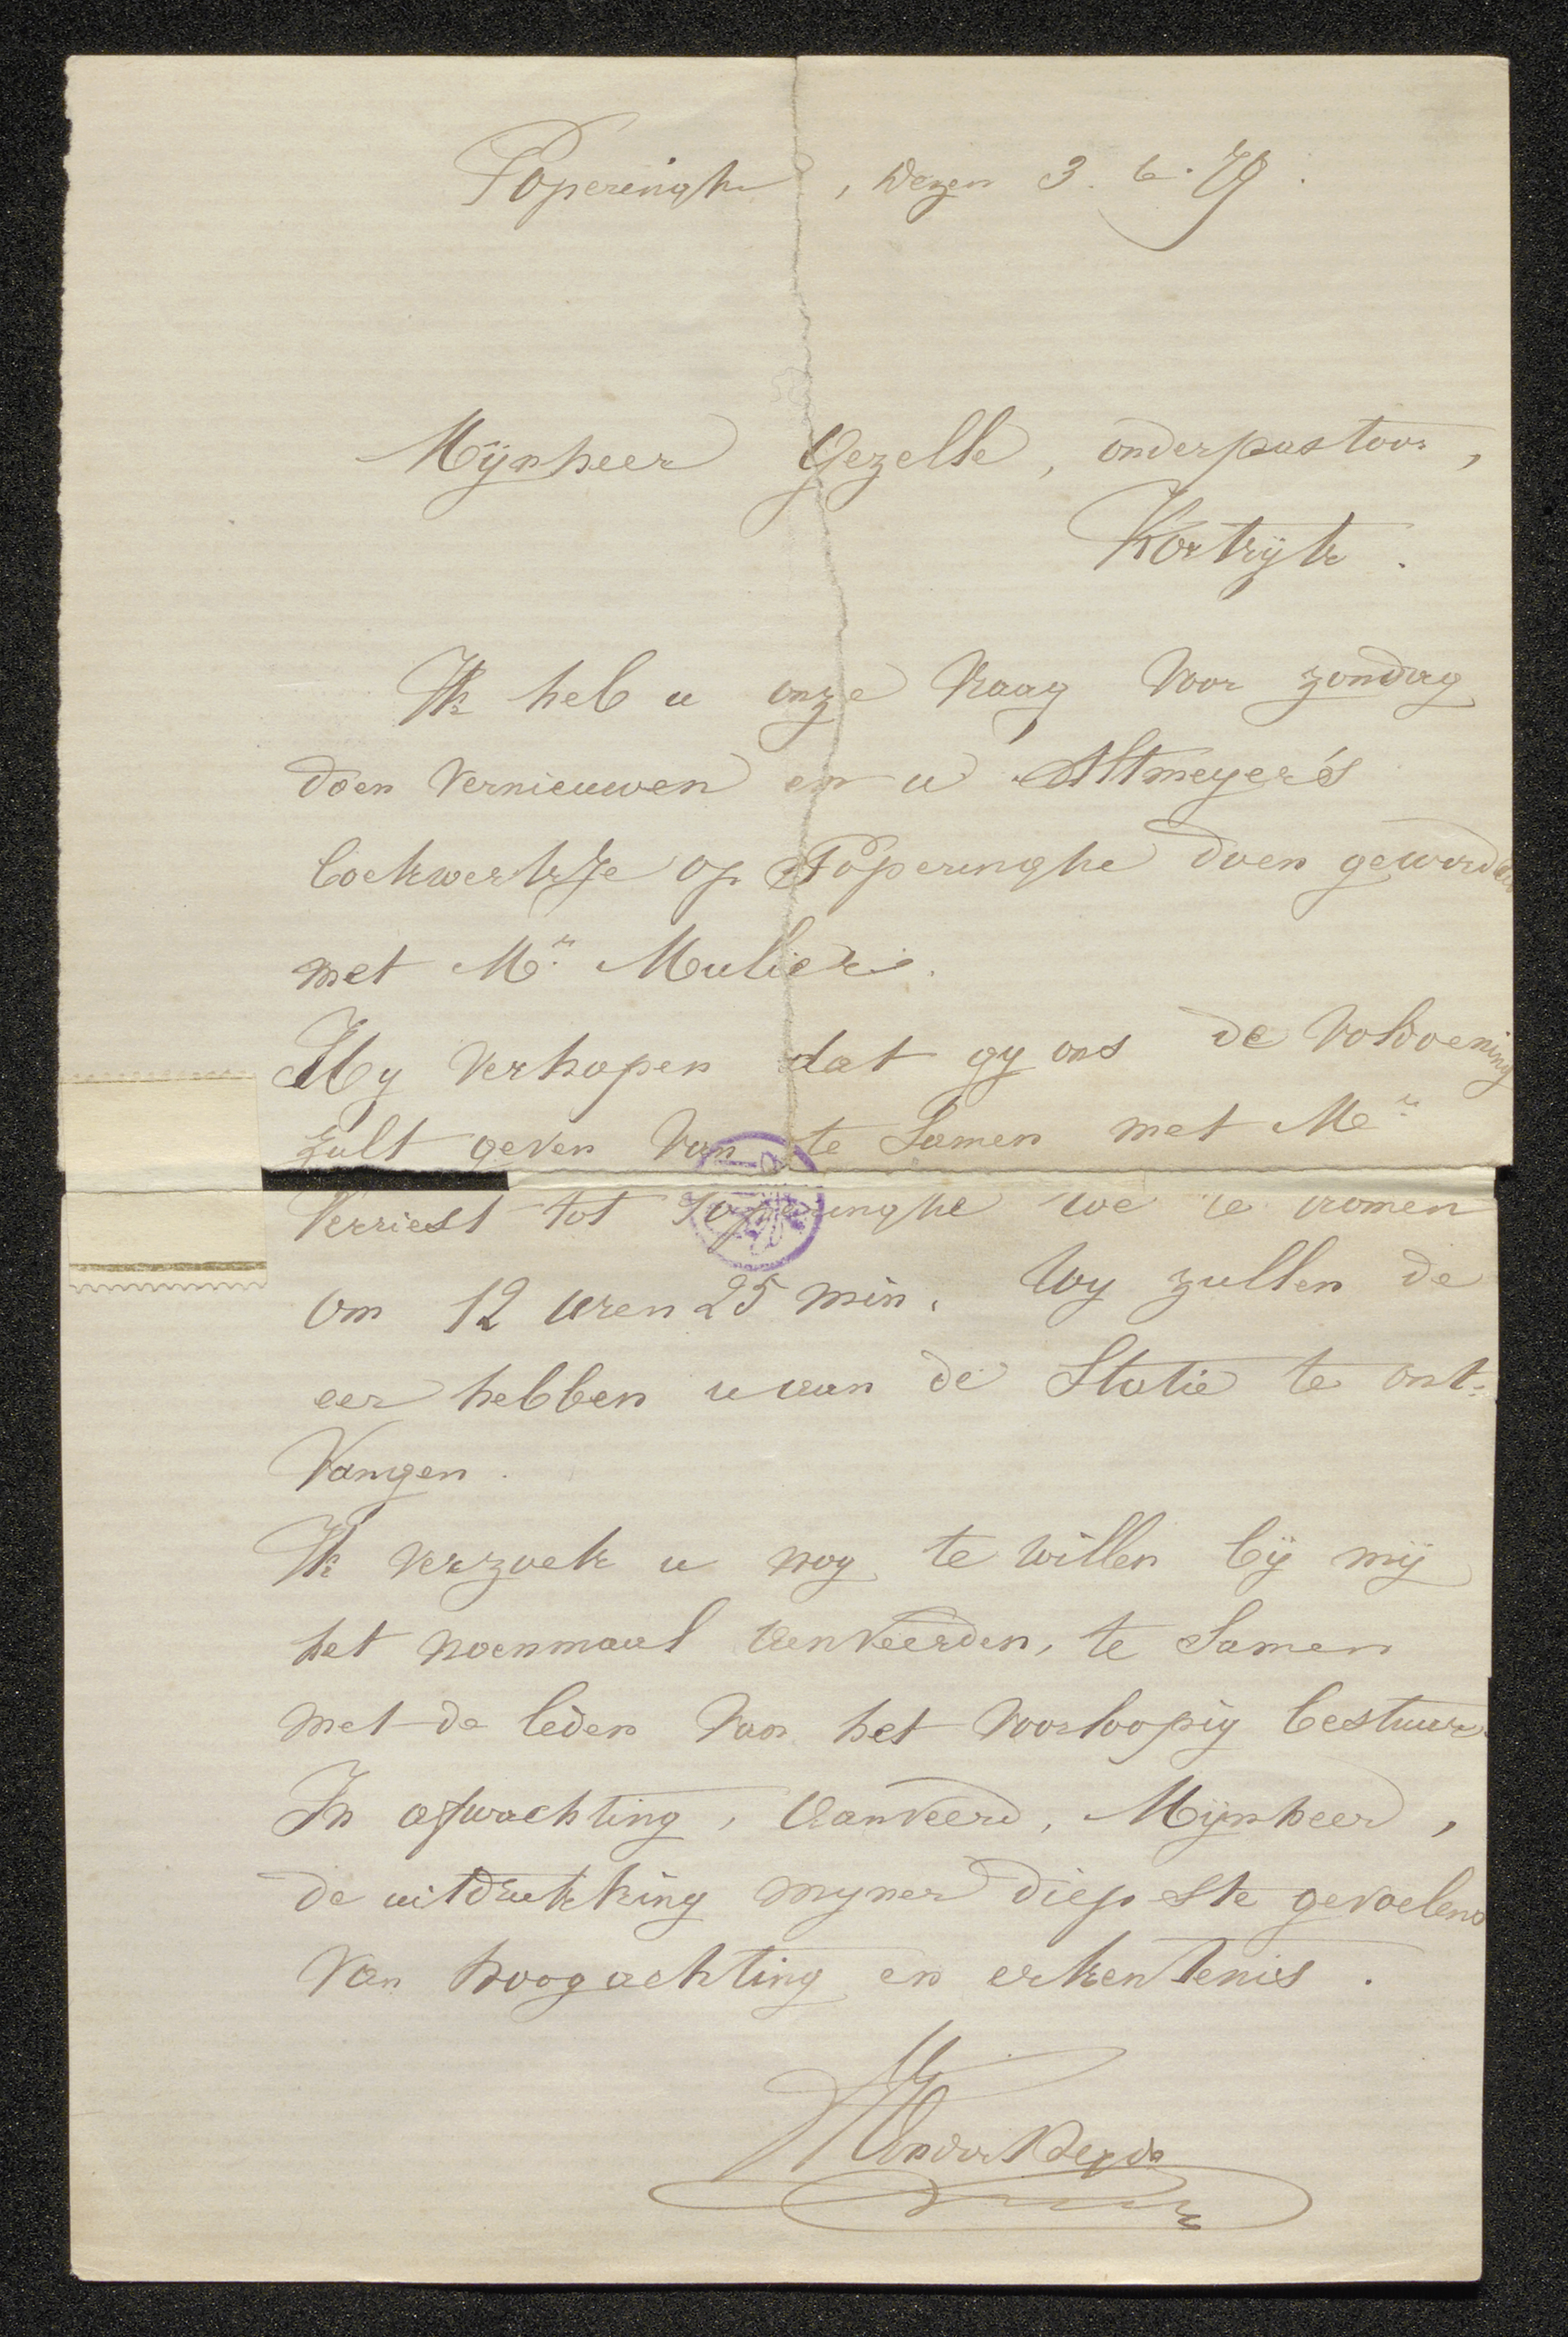 Poperinghe, dezen 3. 6. 79.
Mijnheer Gezelle, onderpastoor,
Kortrijk.
Ik heb u onze vraag voor zondag
doen vernieuwen en u Altmeyer's
boekwerkje op Poperinghe doen geworden
met Mr. Mulier.
Wy verhopen dat gy ons de voldoening
zult geven van te samen met Mr.
Verriest tot Poperinghe te komen
om 12 uren 25 min. Wy zullen de
eer hebben u aan de Statie te ont-
vangen.
Ik verzoek u nog te willen bij mij
het noenmaal aenveerden, te samen
met de leden van het voorloopig bestuur.
In afwachting, aanveerd, Mijnheer,
de uitdrukking myner diepste gevoelens
van hoogachting en erkentenis.